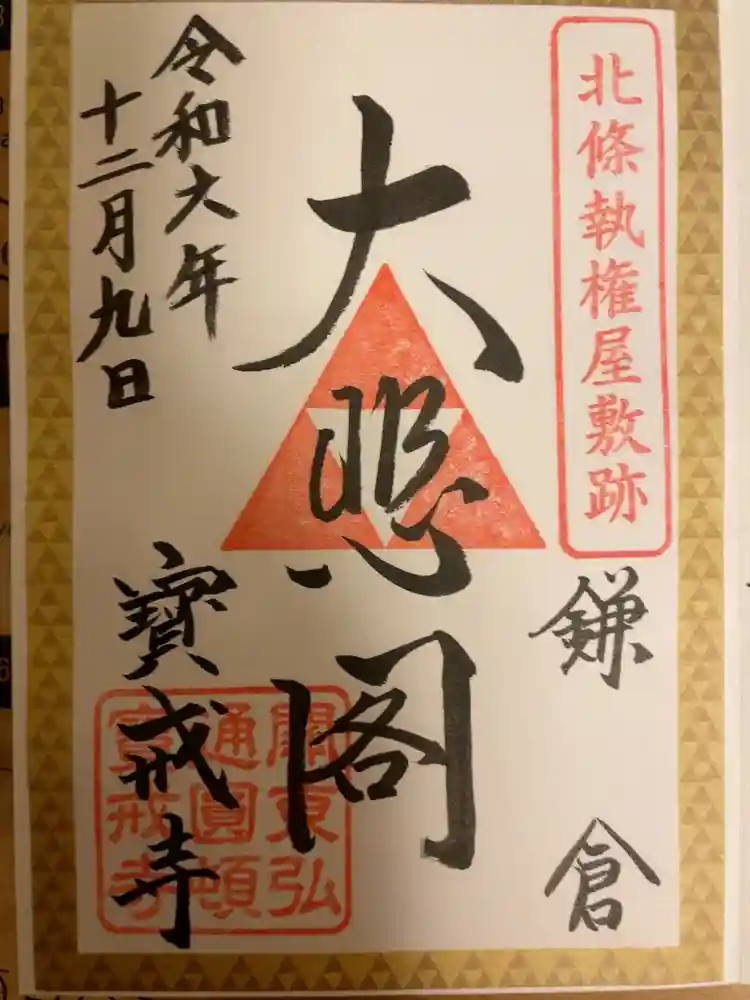 北條執権屋敷跡
鎌倉
大悲閣
令和六年
十二月九日
寶戒寺
關東弘
通圓頓
寶戒寺